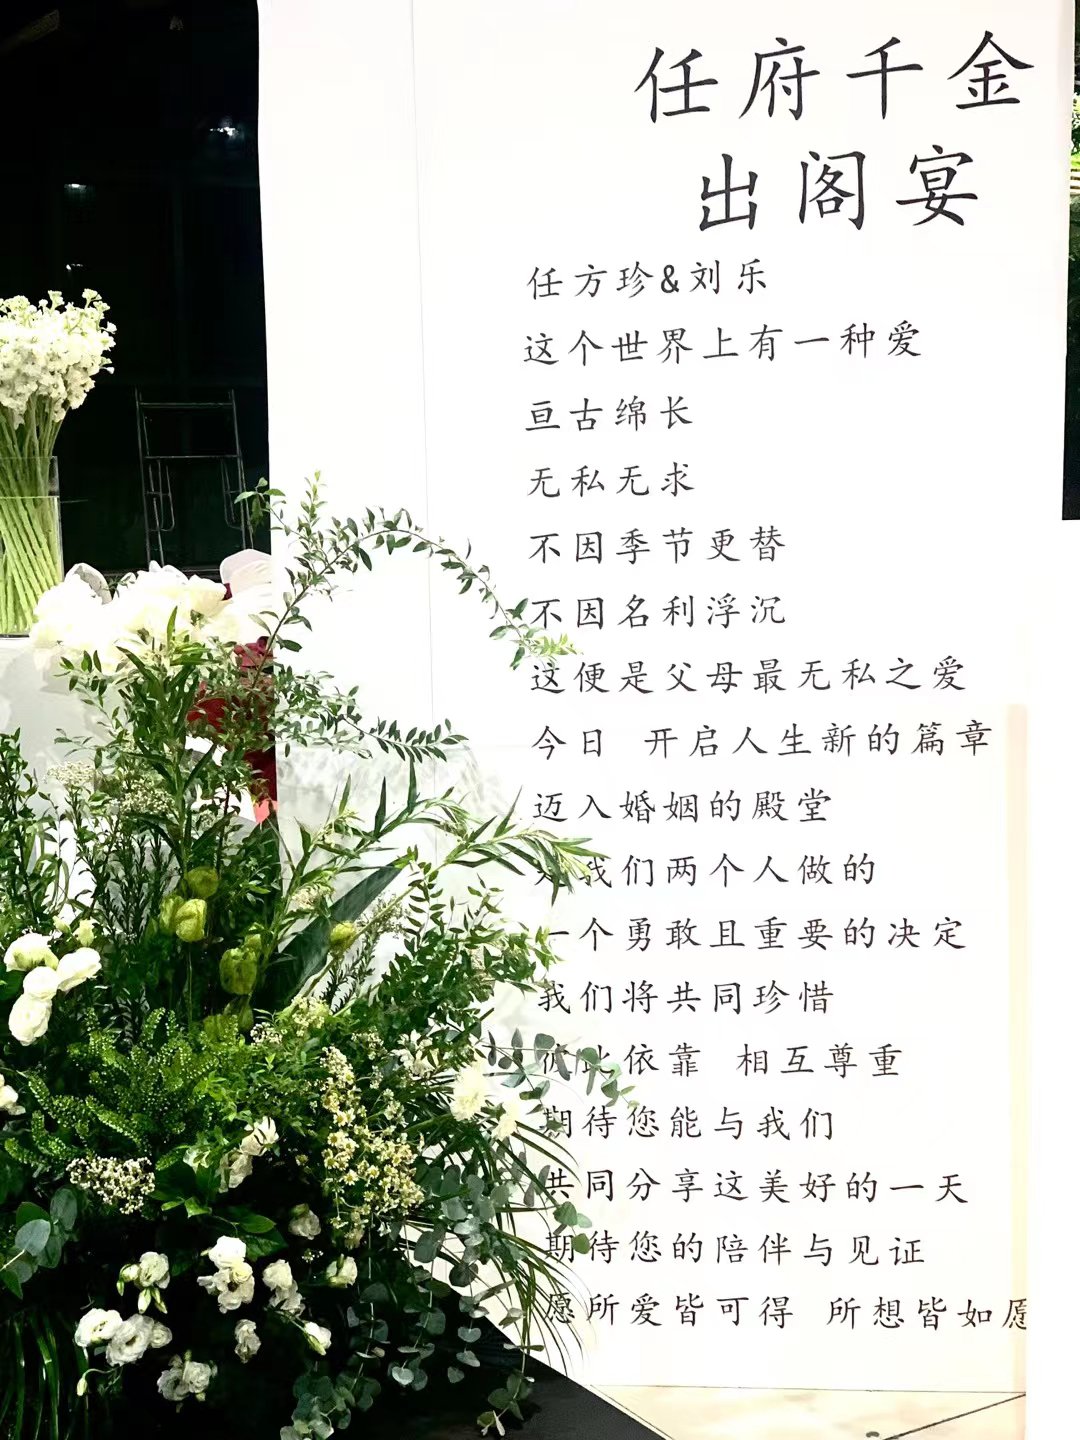 任府千金
出阁宴
任方珍&刘乐
这个世界上有一种爱
亘古绵长
无私无求
不因季节更替
不因名利浮沉
这便是父母最无私之爱
今日 开启人生新的篇章
迈入婚姻的殿堂
我们两个人做的
一个勇敢且重要的决定
我们将共同珍惜
彼此依靠 相互尊重
期待您能与我们
共同分享这美好的一天
期待您的陪伴与见证
愿所爱皆可得 所想皆如愿